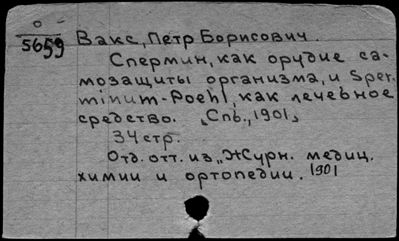 0 -
5659 Вакс, Петр Борисович.
Спермин, как орудие са-
мозащиты организма, и Sper-
minum-Poehl, как лечебное
средство. „Спб., 1901„
34 стр.
Отд. отт. из „Журн. медиц.
химии и ортопедии. 1901